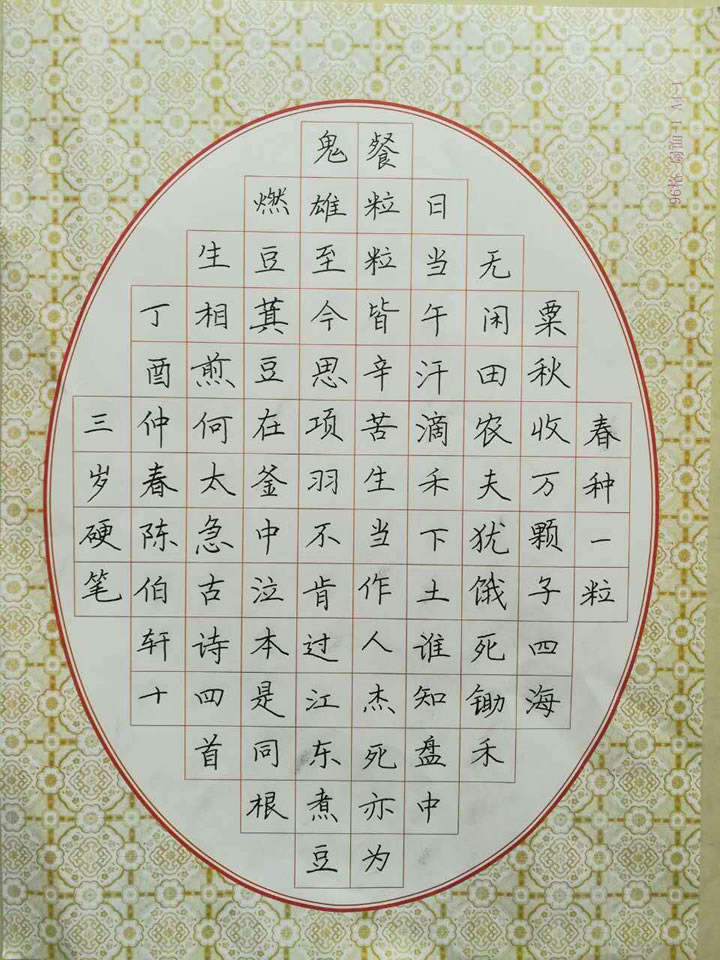 春种一粒
粟秋收万颗子四海
无闲田农夫犹饿死锄禾
日当午汗滴禾下土谁知盘中
餐粒粒皆辛苦生当作人杰死亦为
鬼雄至今思项羽不肯过江东煮豆
燃豆萁豆在釜中泣本是同根
生相煎何太急古诗四首
丁酉仲春陈伯轩十
三岁硬笔
96格